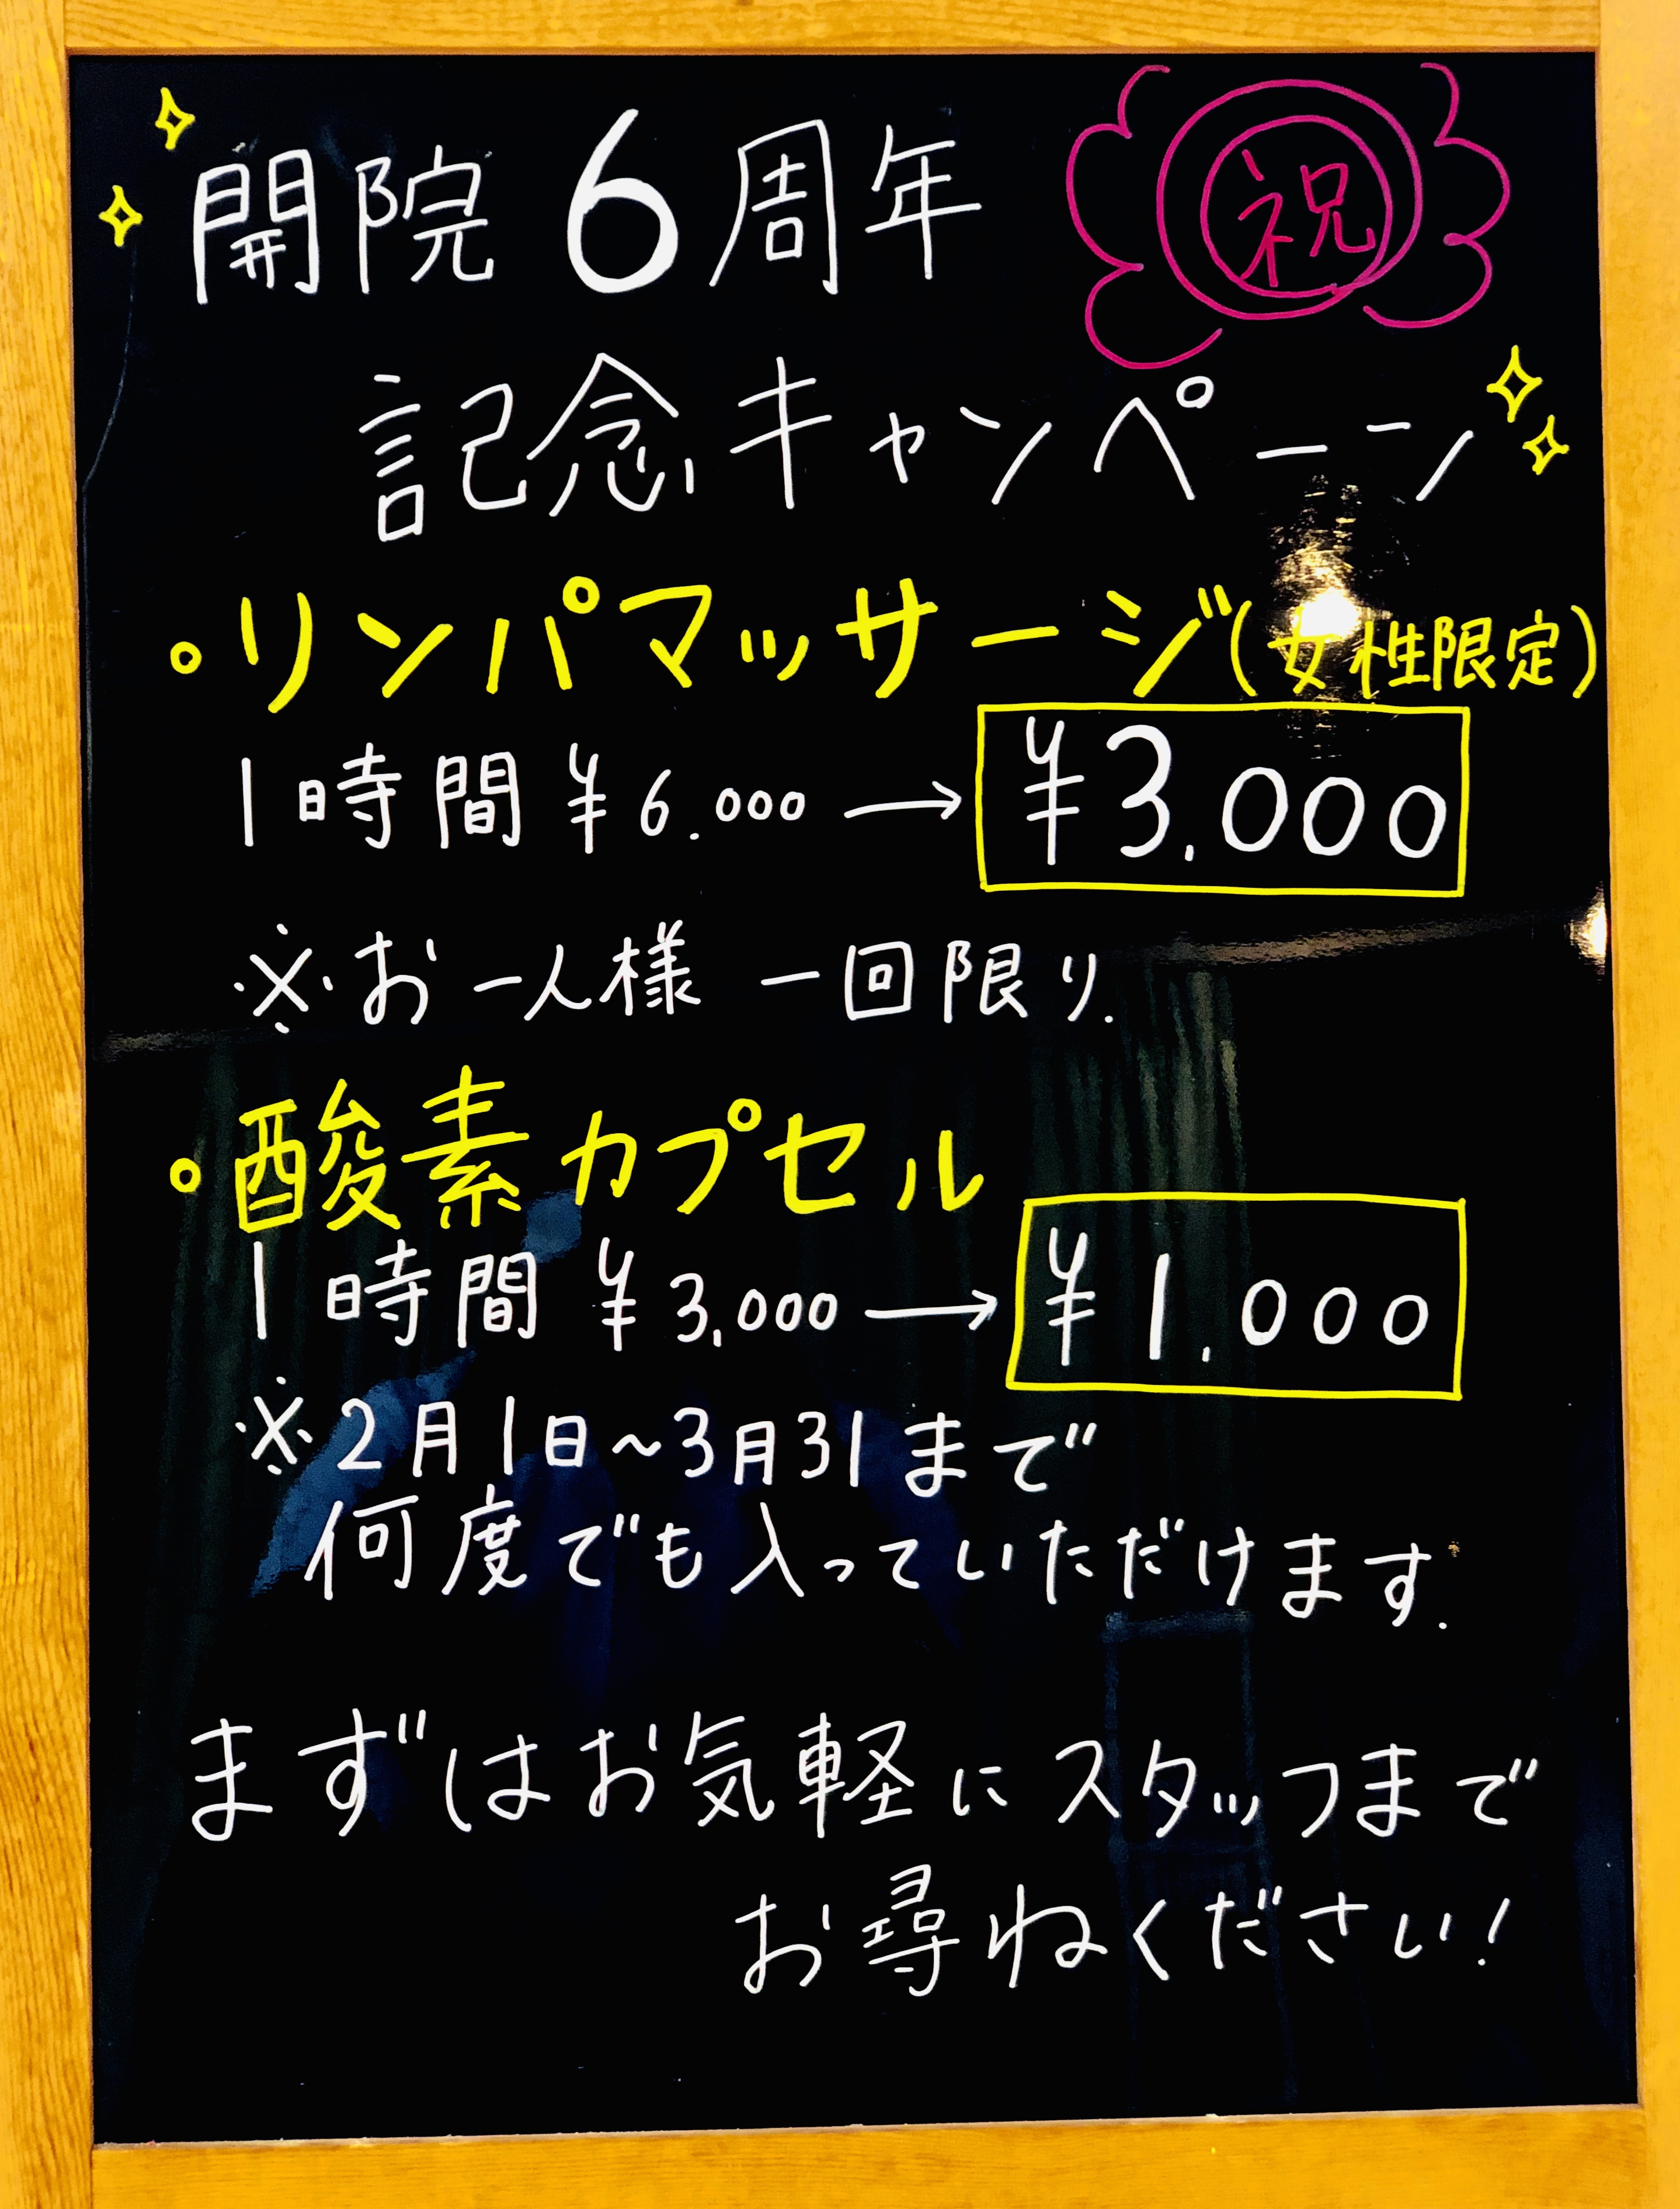 開院6周年
祝
記念キャンペーン
・リンパマッサージ(女性限定)
1時間 ¥6.000 → ¥3.000
※お一人様 一回限り.
・酸素カプセル
1時間 ¥3.000 → ¥1.000
※2月1日~3月31まで
何度でも入っていただけます.
まずはお気軽にスタッフまで
お尋ねください!